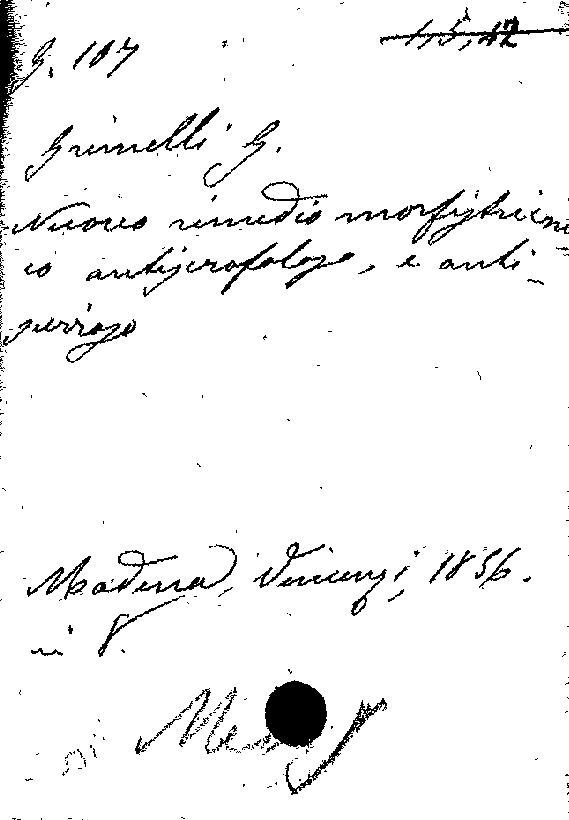 G. 107 1,5,42
Grimelli G.
Nuovo rimedio
io antiscrofoloso, e anti-
Modena, Vincenzi, 1856.
in 8.